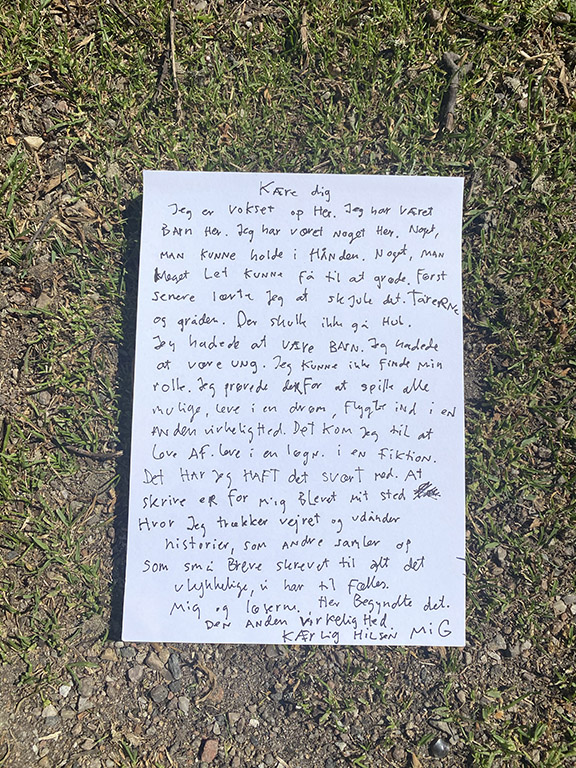 Kære dig
Jeg er vokset op Her. Jeg har været
BARN Her. Jeg har været noget Her. Noget,
MAN KUNNE holde i HÅNDEN. Noget, MAN
Meget Let KUNNE få til at græde. Først
senere lærte Jeg at skjule det. TårerNe
og gråden. Der skulle ikke gå Hul.
Jeg hadede at VÆRE BARN. Jeg hadede
at være UNG. Jeg KUNNE ikke finde min
rolle. Jeg prøvede derfor at spille alle
mulige, leve i en drøm, flygte ind i en
ANDEN virkelighed. Det Kom Jeg til at
leve AF. leve i en løgn. i en fiktion.
Det HAR Jeg HAFT det svært med. At
skrive er for mig Blevet mit sted
Hvor Jeg trækker vejret og udånder
historier, som ANDRE samler op
som små Breve skrevet til alt det
ulykkelige, vi har til fælles.
Mig og læserne. Her Begyndte det.
Den ANDEN Virkelighed.
KÆRLIG HILSEN MiG